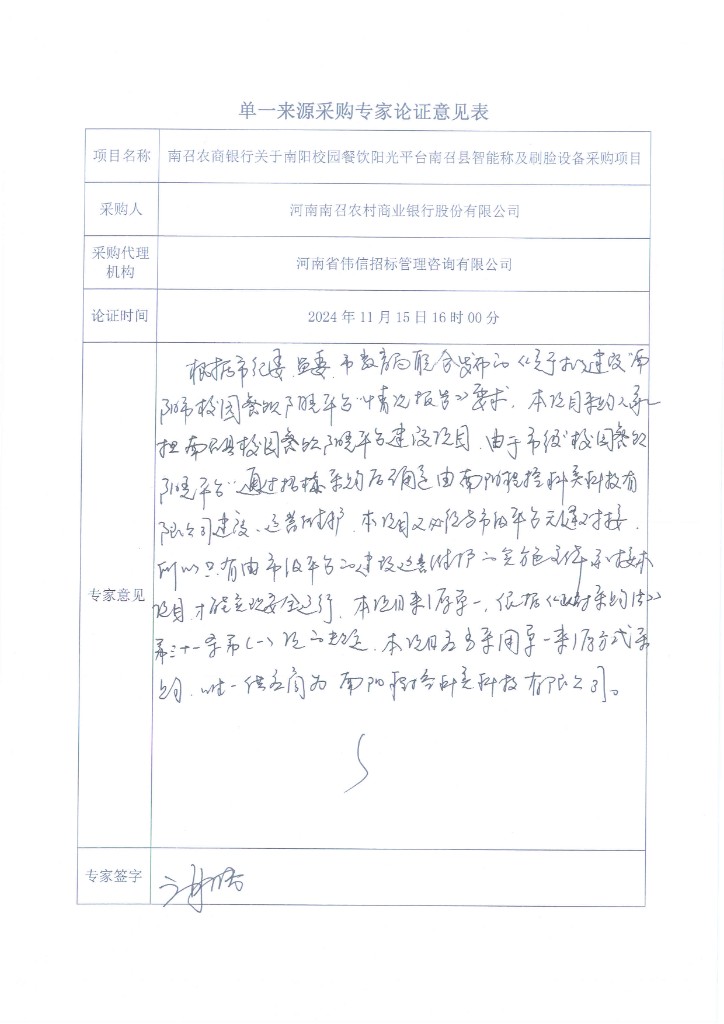 单一来源采购专家论证意见表
项目名称 南召农商银行关于南阳校园餐饮阳光平台南召县智能称及刷脸设备采购项目
采购人 河南南召农村商业银行股份有限公司
采购代理机构 河南省伟信招标管理咨询有限公司
论证时间 2024年11月15日16时00分
专家意见
根据市纪委监委、市教育局联合发布的《关于 建设“南
阳市校园餐饮阳光平台”情况报告》要求，本项目采购人承
担南召县校园餐饮阳光平台建设项目，由于市级“校园餐饮
阳光平台”通过招标采购后确定由南阳 科技有
限公司建设、运营维护，本项目又必须与市级平台无缝对接，
所以只有由市级平台的建设运营维护的实施主体来承接本
项目，才能实现安全运行，本项目来源单一，依据《政府采购法》
第三十一条第（一）项的规定，本项目应当采用单一来源方式采
购，唯一供应商为南阳 科技有限公司。
专家签字